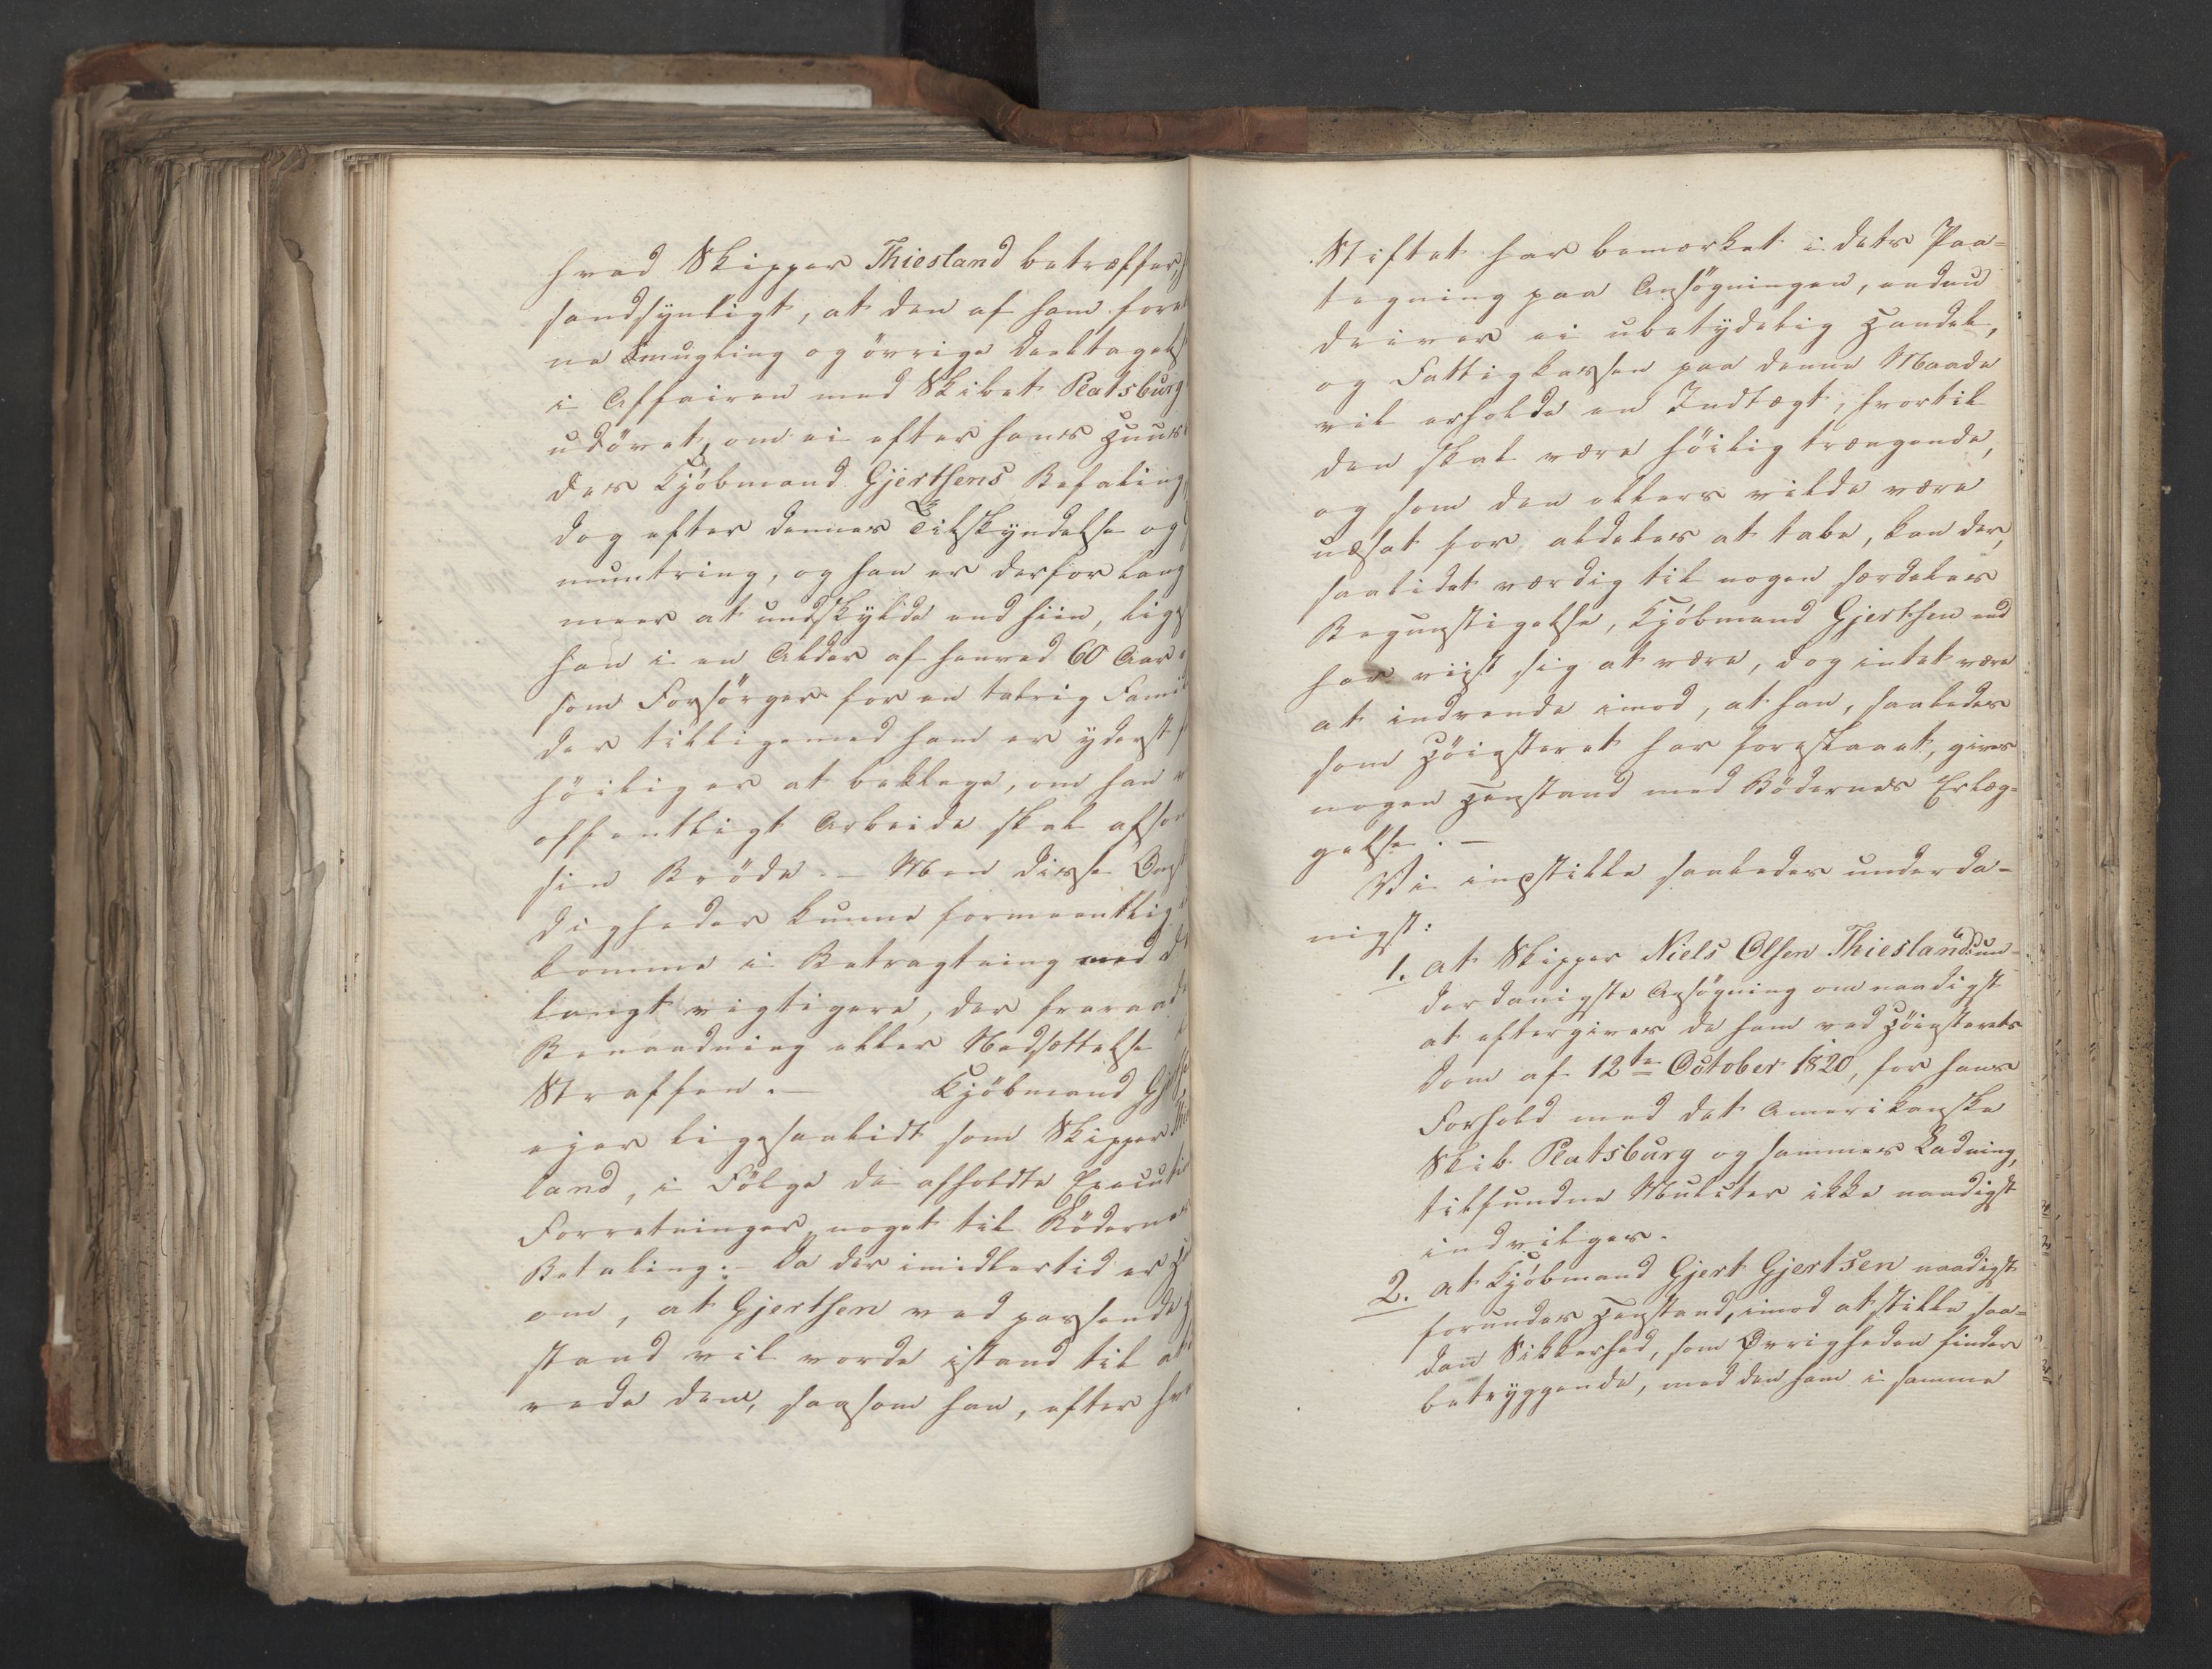 hvad Skipper Thiesland betræffer,
sandsynligt, at den af ham fore
ne Smugling og övrige Deeltagels
i Affairen med Skibet Platsburg
udövet, om ei efter hans Huus
des Kjöbmand Gjertsens Befaling,
dog efter dennes Tilskyndelse og
muntring, og han er derfor lang
meer at undskylde end hiin, lig
han i en Alder af henved 60 Aar
som Forsörger for en talrig Fami
der tilligemed ham er yderst
höilig er at beklage, om han
offentligt Arbeide skal afson
sin Bröde. – Men disse Omst
digheder kunne formeentlig
komme i Betragtning mod
langt vigtigere, der fraraade
Benaadning eller Nedsættelse
Straffen. – Kjöbmand Gjertse
ejer ligesaalidt som Skipper Thies
land, i Fölge de afholdte Executi
Forretninger, noget til Bödernes
Betaling. – Da der imidlertid er
om, at Gjertsen ved passende
stand vil vorde istand til at
rede dem, saasom han, efter hv
Stiftet har bemærket i dets Paa-
tegning paa Ansögningen, endnu
driver ei ubetydelig Handel,
og Fattigkassen paa denne Maade
vil erholde en Indtægt, hvortil
den skal være höilig trængende,
og som den ellers vilde være
udsat for aldeles at tabe, kan der,
saalidet værdig til nogen særdeles
Begunstigelse, Kjöbmand Gjertsen end
har viist sig at være, dog intet være
at indvende imod, at han, saaledes
som Höiesteret har foreslaaet, gives
nogen Henstand med Bödernes Erlæg-
gelse. –
Vi indstille saaledes underda-
nigst:
1. at Skipper Niels Olsen Thieslands un-
derdanigste Ansögning om naadigst
at eftergives de ham ved Höiesterets
Dom af 12te October 1820, for hans
Forhold med det Amerikanske
Skib Platsburg og sammes Ladning,
tilfundne Mulcter ikke naadigst
indvilges.
2. at Kjöbmand Gjert Gjertsen naadigst
forundes Henstand, imod at stille saa-
dan Sikkerhed, som Øvrigheden finder
betryggende, med den ham i samme